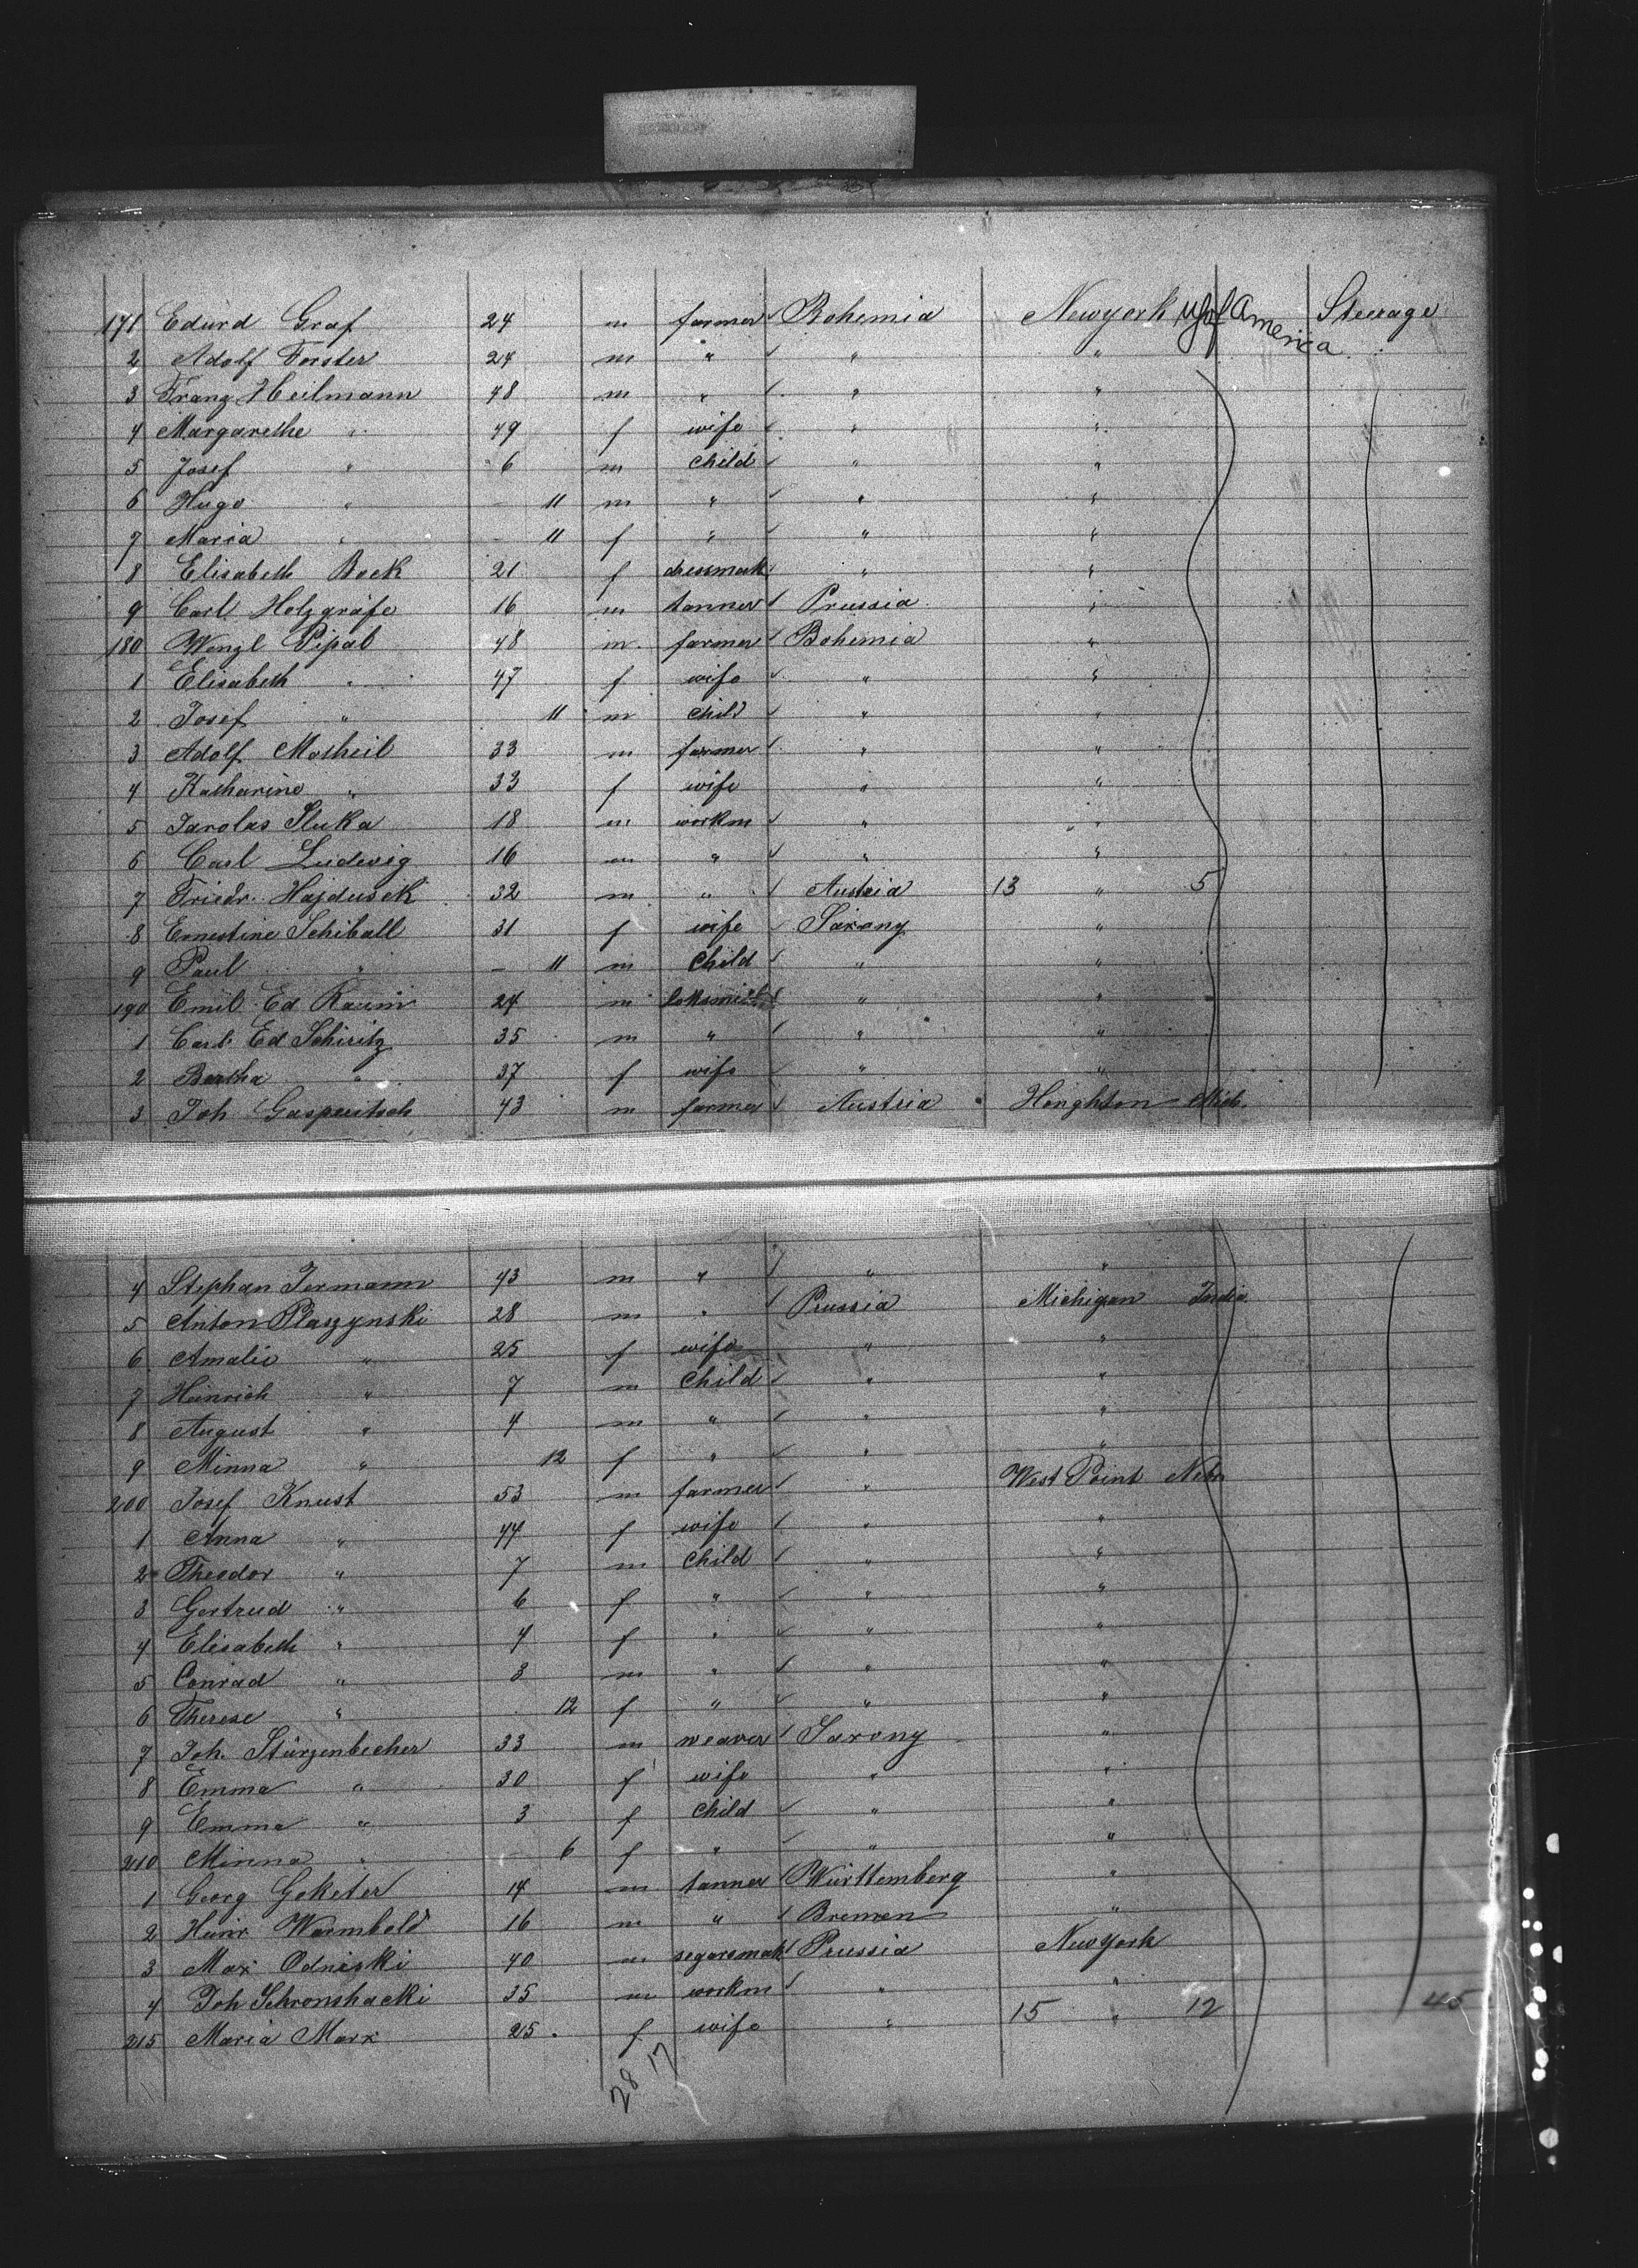 171 Edurd Graf 24 m farmer Bohemia Newyork US of America Steerage
2 Adolf Forster 24 m " " "
3 Franz Heilmann 48 m " " "
4 Margarethe " 49 f wife " "
5 Josef " 6 m child " "
6 Hugo " - 11 m " " "
7 Maria " - 11 f " " "
8 Elisabeth Bock 21 f dressmak " "
9 Carl Holzgräfe 16 m tanner Prussia "
180 Wenzl Pipal 48 m farmer Bohemia "
1 Elisabeth " 47 f wife " "
2 Josef " 11 m child " "
3 Adolf Motheil 33 m farmer " "
4 Katharine " 33 f wife " "
5 Jarolas Sluka 18 m workm " "
6 Carl Ludewig 16 m " " "
7 Friedr. Hajduseck 32 m " Austria 13 " 5
8 Ernestine Schiball 31 f wife Saxony "
9 Paul " - 11 m child " "
190 Emil Ed Raum 24 m loksmith " "
1 Carl Ed Schiritz 35 m " " "
2 Bertha " 37 f wife " "
3 Joh Gasperitsch 43 m farmer Austria Honghton Mich.
4 Stephan Jermann 43 m " " "
5 Anton Plaszynski 28 m " Prussia Michigan India
6 Amalie " 25 f wife " "
7 Heinrich " 7 m child " "
8 August " 4 m " " "
9 Minna " 12 f " " "
200 Josef Knust 53 m farmer " West Point Nebr
1 Anna " 44 f wife " "
2 Theodor " 7 m child " "
3 Gertrud " 6 f " " "
4 Elisabeth " 4 f " " "
5 Conrad " 3 m " " "
6 Therese " 12 f " " "
7 Joh. Stürzenbecher 33 m weaver Saxony "
8 Emma " 30 f wife " "
9 Emma " 3 f child " "
210 Minna " - 6 f " " "
1 Georg Geketer 14 m tanner Württemberg "
2 Heinr Warmbold 16 m " Bremen "
3 Max Odniski 40 m segaremak Prussia Newyork
4 Joh Schronshacki 35 m workm " "
215 Maria Marx 25 f wife " 15 " 12 45
28 17